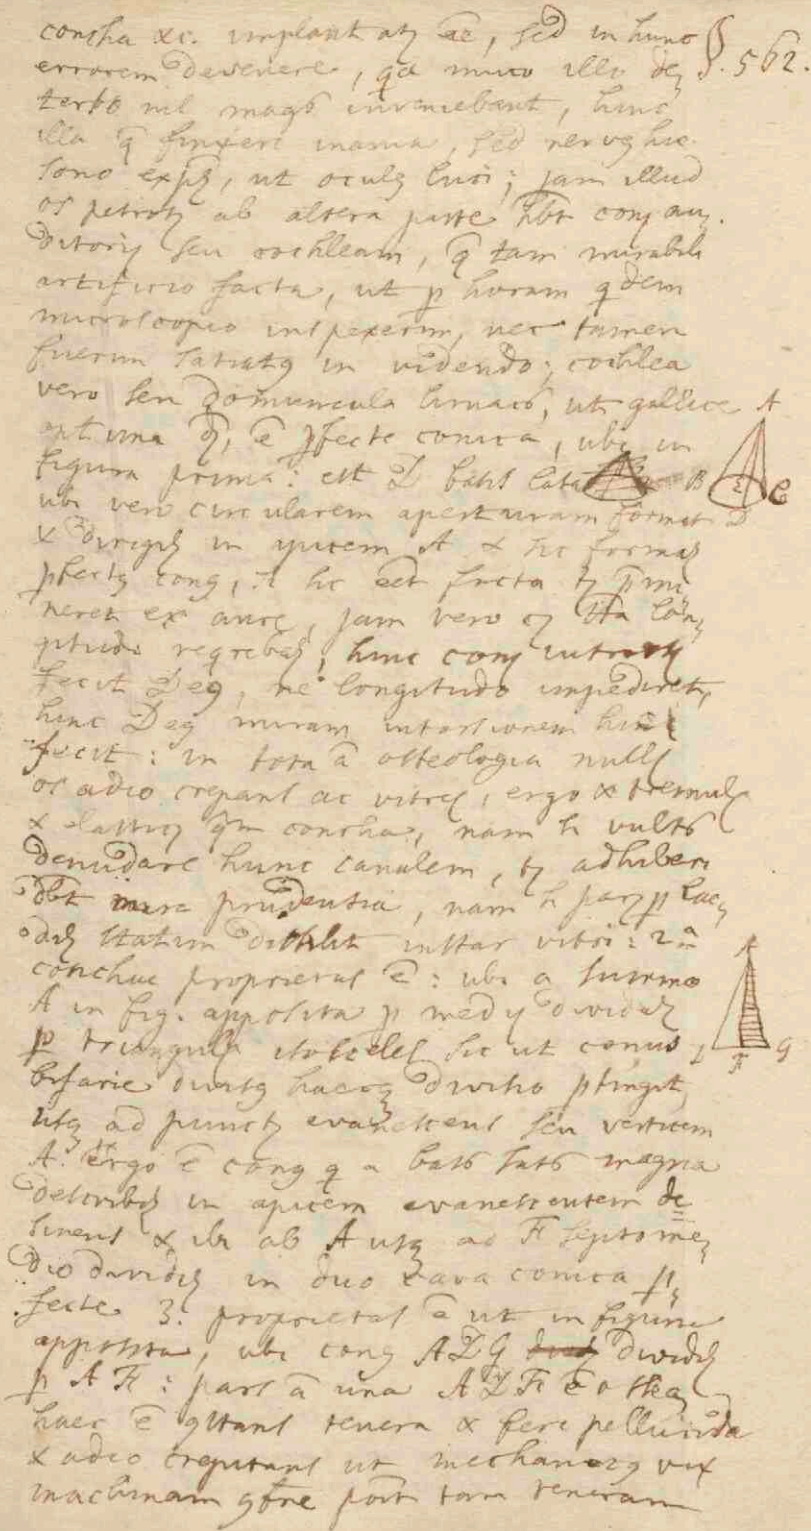 concha &c. implantatz ee, sed in hunc §. 562.
errorem devenere, qa muco illo de,
terso nil magis inveniebant, hinc
illa q finxere inania, sed nervg hic
sono expz, ut oculg luci; jam illud
os petrosz ab altera parte hbt conz au,
ditoriz seu cochleam, q tam mirabili
artificio facta, ut p horam qdem
microscopio inspexerim, nec tamen
fuerim satiatg in videndo; cochlea
vero seu domuncula limacis, ut gallice A
una q, e pfecte conica, ubi in
figura prima: est D basis lata B C
ubi vero circularem aperturam format D
& dirigz in apicem A & sic formaz
pfectg cong, si sic eet facta
ex aure, jam vero cz ista lon,
gitudo reqrebaz, hinc conz
fecit Deg, ne longitudo impediret,
hinc Deg miram intorsionem hinc
fecit: in tota a osteologia nullz
os adeo crepans ac vitrez, ergo & tremulz
& elasticz qm concha, nam si vultis
denudare hunc canalem, tz adhiberi
dbt mira prudentia, nam si parz p lae,
daz statim dissilit instar vitri: 2da
conchae proprietas e: ubi a summo A
A in fig. apposita p mediz dividaz
p triangulz isosceles sic ut conus D G
bifarie divisg haecqz divisio ptingit, F
usqz ad punctz evanescens seu verticem
A. Ergo e cong q a basi satis magna
describiz in apicem evanescentem de
sinens & ibi ab A usqz ad F septo me,
dio dividiz in duo cava conica p,
fecte 3. proprietas e ut in figura
apposita, ubi cong ADG dividiz
p AF: pars a una ADF e ossea,
haec e qstans tenera & fere pellucida
& adeo crepitans ut mechanicg vix
machinam qstrue posst tam teneram